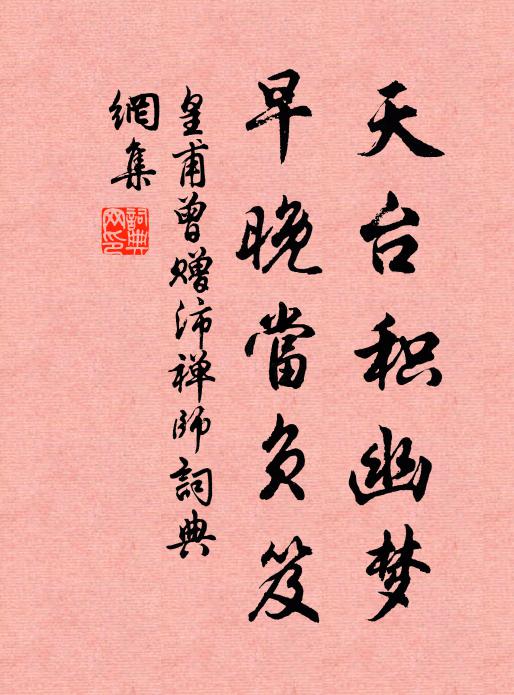 天台积幽梦
早晚當负笈
皇甫曾赠沛禅师詞典
網集
詞典網印